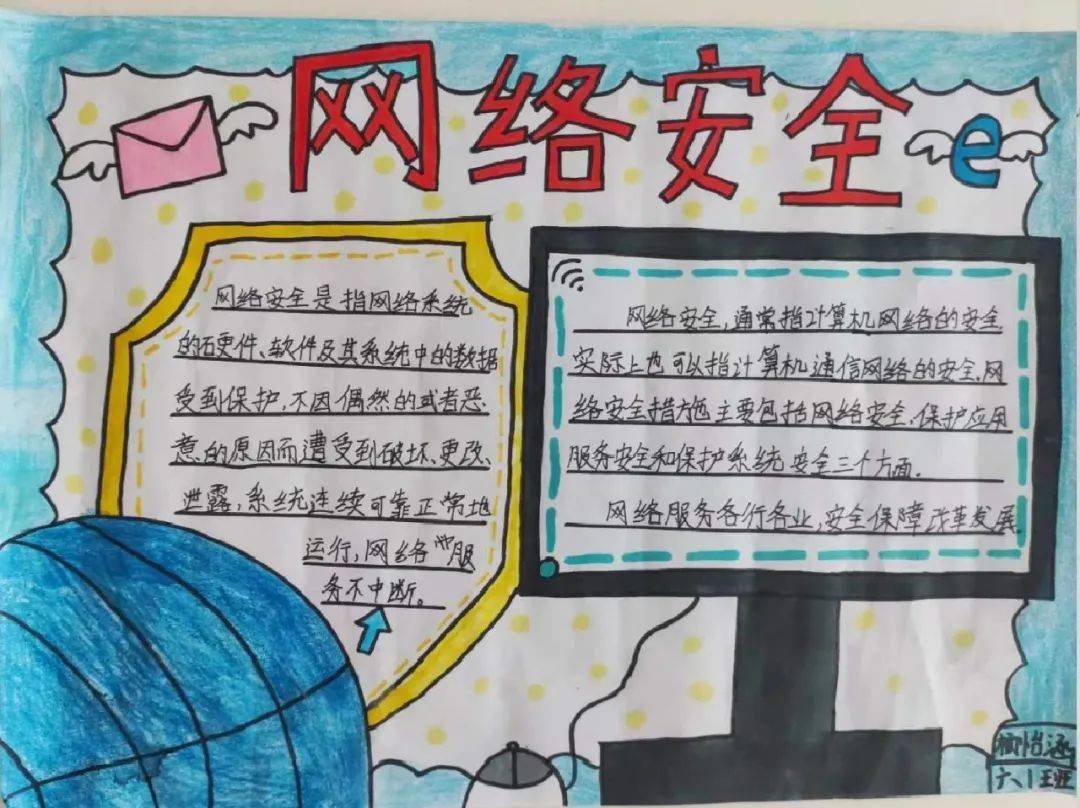 网络安全
网络安全是指网络系统
的硬件、软件及其系统中的数据
受到保护,不因偶然的或者恶
意的原因而遭受到破坏、更改、
泄露,系统连续可靠正常地
运行,网络服
务不中断。
网络安全,通常指计算机网络的安全
实际上也可以指计算机通信网络的安全.网
络安全措施主要包括网络安全.保护应用
服务安全和保护系统安全三个方面.
网络服务各行各业,安全保障改革发展.
怡涵
六1班